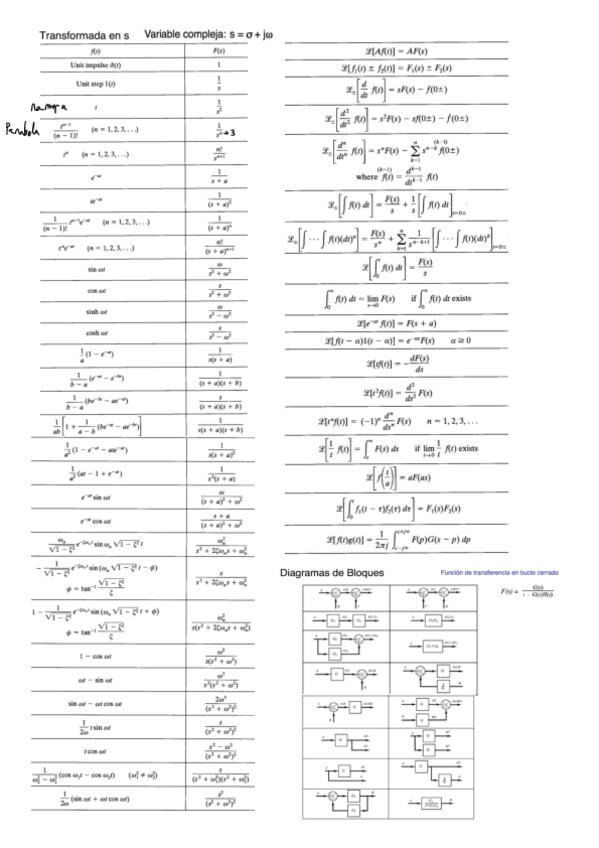 Transformada en s Variable compleja: s = σ + jω
f(t) F(s)
Unit impulse δ(t) 1
Unit step 1(t) 1/s
rampa t 1/s²
Parabola t^(n-1)/(n − 1)! (n = 1, 2, 3, . . .) 1/s^n → 3
t^n (n = 1, 2, 3, . . .) n!/s^(n+1)
e^(-at) 1/(s + a)
te^(-at) 1/(s + a)²
1/(n − 1)! t^(n-1)e^(-at) (n = 1, 2, 3, . . .) 1/(s + a)^n
t^n e^(-at) (n = 1, 2, 3, . . .) n!/(s + a)^(n+1)
sin ωt ω/(s² + ω²)
cos ωt s/(s² + ω²)
sinh ωt ω/(s² − ω²)
cosh ωt s/(s² − ω²)
1/a (1 − e^(-at)) 1/(s(s + a))
1/(b − a) (e^(-at) − e^(-bt)) 1/((s + a)(s + b))
1/(b − a) (be^(-bt) − ae^(-at)) s/((s + a)(s + b))
1/ab [1 + 1/(a − b) (be^(-at) − ae^(-bt))] 1/(s(s + a)(s + b))
1/a² (1 − e^(-at) − ate^(-at)) 1/(s(s + a)²)
1/a² (at − 1 + e^(-at)) 1/(s²(s + a))
e^(-at) sin ωt ω/((s + a)² + ω²)
e^(-at) cos ωt (s + a)/((s + a)² + ω²)
ωn/√(1 − ζ²) e^(-ζωn t) sin ωn √(1 − ζ²) t ωn²/(s² + 2ζωn s + ωn²)
− 1/√(1 − ζ²) e^(-ζωn t) sin (ωn √(1 − ζ²) t − φ) s/(s² + 2ζωn s + ωn²)
φ = tan⁻¹ √(1 − ζ²)/ζ
1 − 1/√(1 − ζ²) e^(-ζωn t) sin (ωn √(1 − ζ²) t + φ) ωn²/(s(s² + 2ζωn s + ωn²))
φ = tan⁻¹ √(1 − ζ²)/ζ
1 − cos ωt ω²/(s(s² + ω²))
ωt − sin ωt ω³/(s²(s² + ω²))
sin ωt − ωt cos ωt 2ω³/(s² + ω²)²
1/2ω t sin ωt s/(s² + ω²)²
t cos ωt (s² − ω²)/(s² + ω²)²
1/(ω2² − ω1²) (cos ω1t − cos ω2t) (ω1² ≠ ω2²) s/((s² + ω1²)(s² + ω2²))
1/2ω (sin ωt + ωt cos ωt) s²/(s² + ω²)²
ℒ[Af(t)] = AF(s)
ℒ[f1(t) ± f2(t)] = F1(s) ± F2(s)
ℒ±[d/dt f(t)] = sF(s) − f(0±)
ℒ±[d²/dt² f(t)] = s²F(s) − sf(0±) − ḟ(0±)
ℒ±[d^n/dt^n f(t)] = s^n F(s) − Σ(k=1 to n) s^(n-k) f^(k-1)(0±)
where f^(k-1)(t) = d^(k-1)/dt^(k-1) f(t)
ℒ±[∫ f(t) dt] = F(s)/s + 1/s [∫ f(t) dt] t=0±
ℒ±[∫ · · · ∫ f(t)(dt)^n] = F(s)/s^n + Σ(k=1 to n) 1/s^(n-k+1) [∫ · · · ∫ f(t)(dt)^k] t=0±
ℒ[∫0^t f(t) dt] = F(s)/s
∫0^∞ f(t) dt = lim s→0 F(s) if ∫0^∞ f(t) dt exists
ℒ[e^(-at) f(t)] = F(s + a)
ℒ[f(t − α)1(t − α)] = e^(-αs)F(s) α ≥ 0
ℒ[tf(t)] = − dF(s)/ds
ℒ[t²f(t)] = d²/ds² F(s)
ℒ[t^n f(t)] = (−1)^n d^n/ds^n F(s) n = 1, 2, 3, . . .
ℒ[1/t f(t)] = ∫s^∞ F(s) ds if lim t→0 1/t f(t) exists
ℒ[f(t/a)] = aF(as)
ℒ[∫0^t f1(t − τ)f2(τ) dτ] = F1(s)F2(s)
ℒ[f(t)g(t)] = 1/2πj ∫c−j∞^c+j∞ F(p)G(s − p) dp
Diagramas de Bloques
Función de transferencia en bucle cerrado